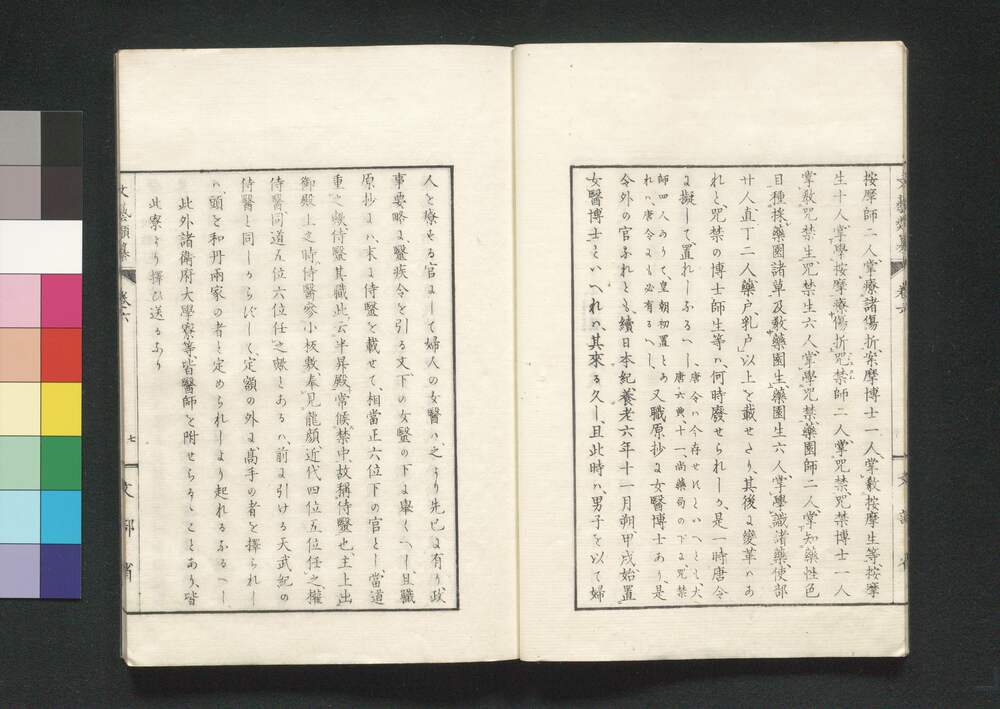 按摩師二人、掌療諸傷折、案摩博士一人、掌敎按摩生等、按摩
生十人、掌學按摩療傷折、咒禁師二人、掌咒禁、咒禁博士一人
掌敎咒禁生、咒禁生六人、掌學咒禁、藥園師二人、掌知藥性色
目種採藥園諸草及敎藥園生、藥園生六人、掌學識諸藥、使部
廿人、直丁二人、藥戶、乳戶、以上を載せたり、其後は變革ハあ
れと、咒禁の博士師生等ハ、何時廢せられしか、是一時唐令
に擬して、置れしなるへし、
唐令ハ今存せされといへとも、大
唐六典、十一、尚藥局の下に、咒禁
師四人ありて、皇朝初置とあ
れハ、唐令にも必有るへし、
又職原抄に女醫博士あり、是
令外の官なれとも、續日本紀、養老六年十一月朔、甲戌始置
女醫博士といへれハ、其來る久し、且此時ハ、男子を以て婦
文藝類纂
卷六
文部省
人を療する官にして婦人の女醫ハ、之より先已に有り政
事要略に、醫疾令を引る文下の女醫の下に擧くへし、且職
原抄にハ、末に侍醫を載せて、相當正六位下の官とし、當道
重之、蟆侍醫其職此云、半昇殿、常候禁中、故稱侍醫也、主上出
御殿上之時、侍醫參小板敷、奉見龍顏、近代四位五位任之、權
侍醫同、道五位六位任之、蟆とあるハ、前に引ける天武紀の
侍醫と同しからすして、定額の外に、高手の者を擇られし
ハ、頭を和丹兩家の者と定められしより起れるなるへし
此外諸衞府大學寮等、皆醫師を附せらるゝことあり、皆
此寮より擇ひ送るなり
文藝類纂
卷六
七
文部省